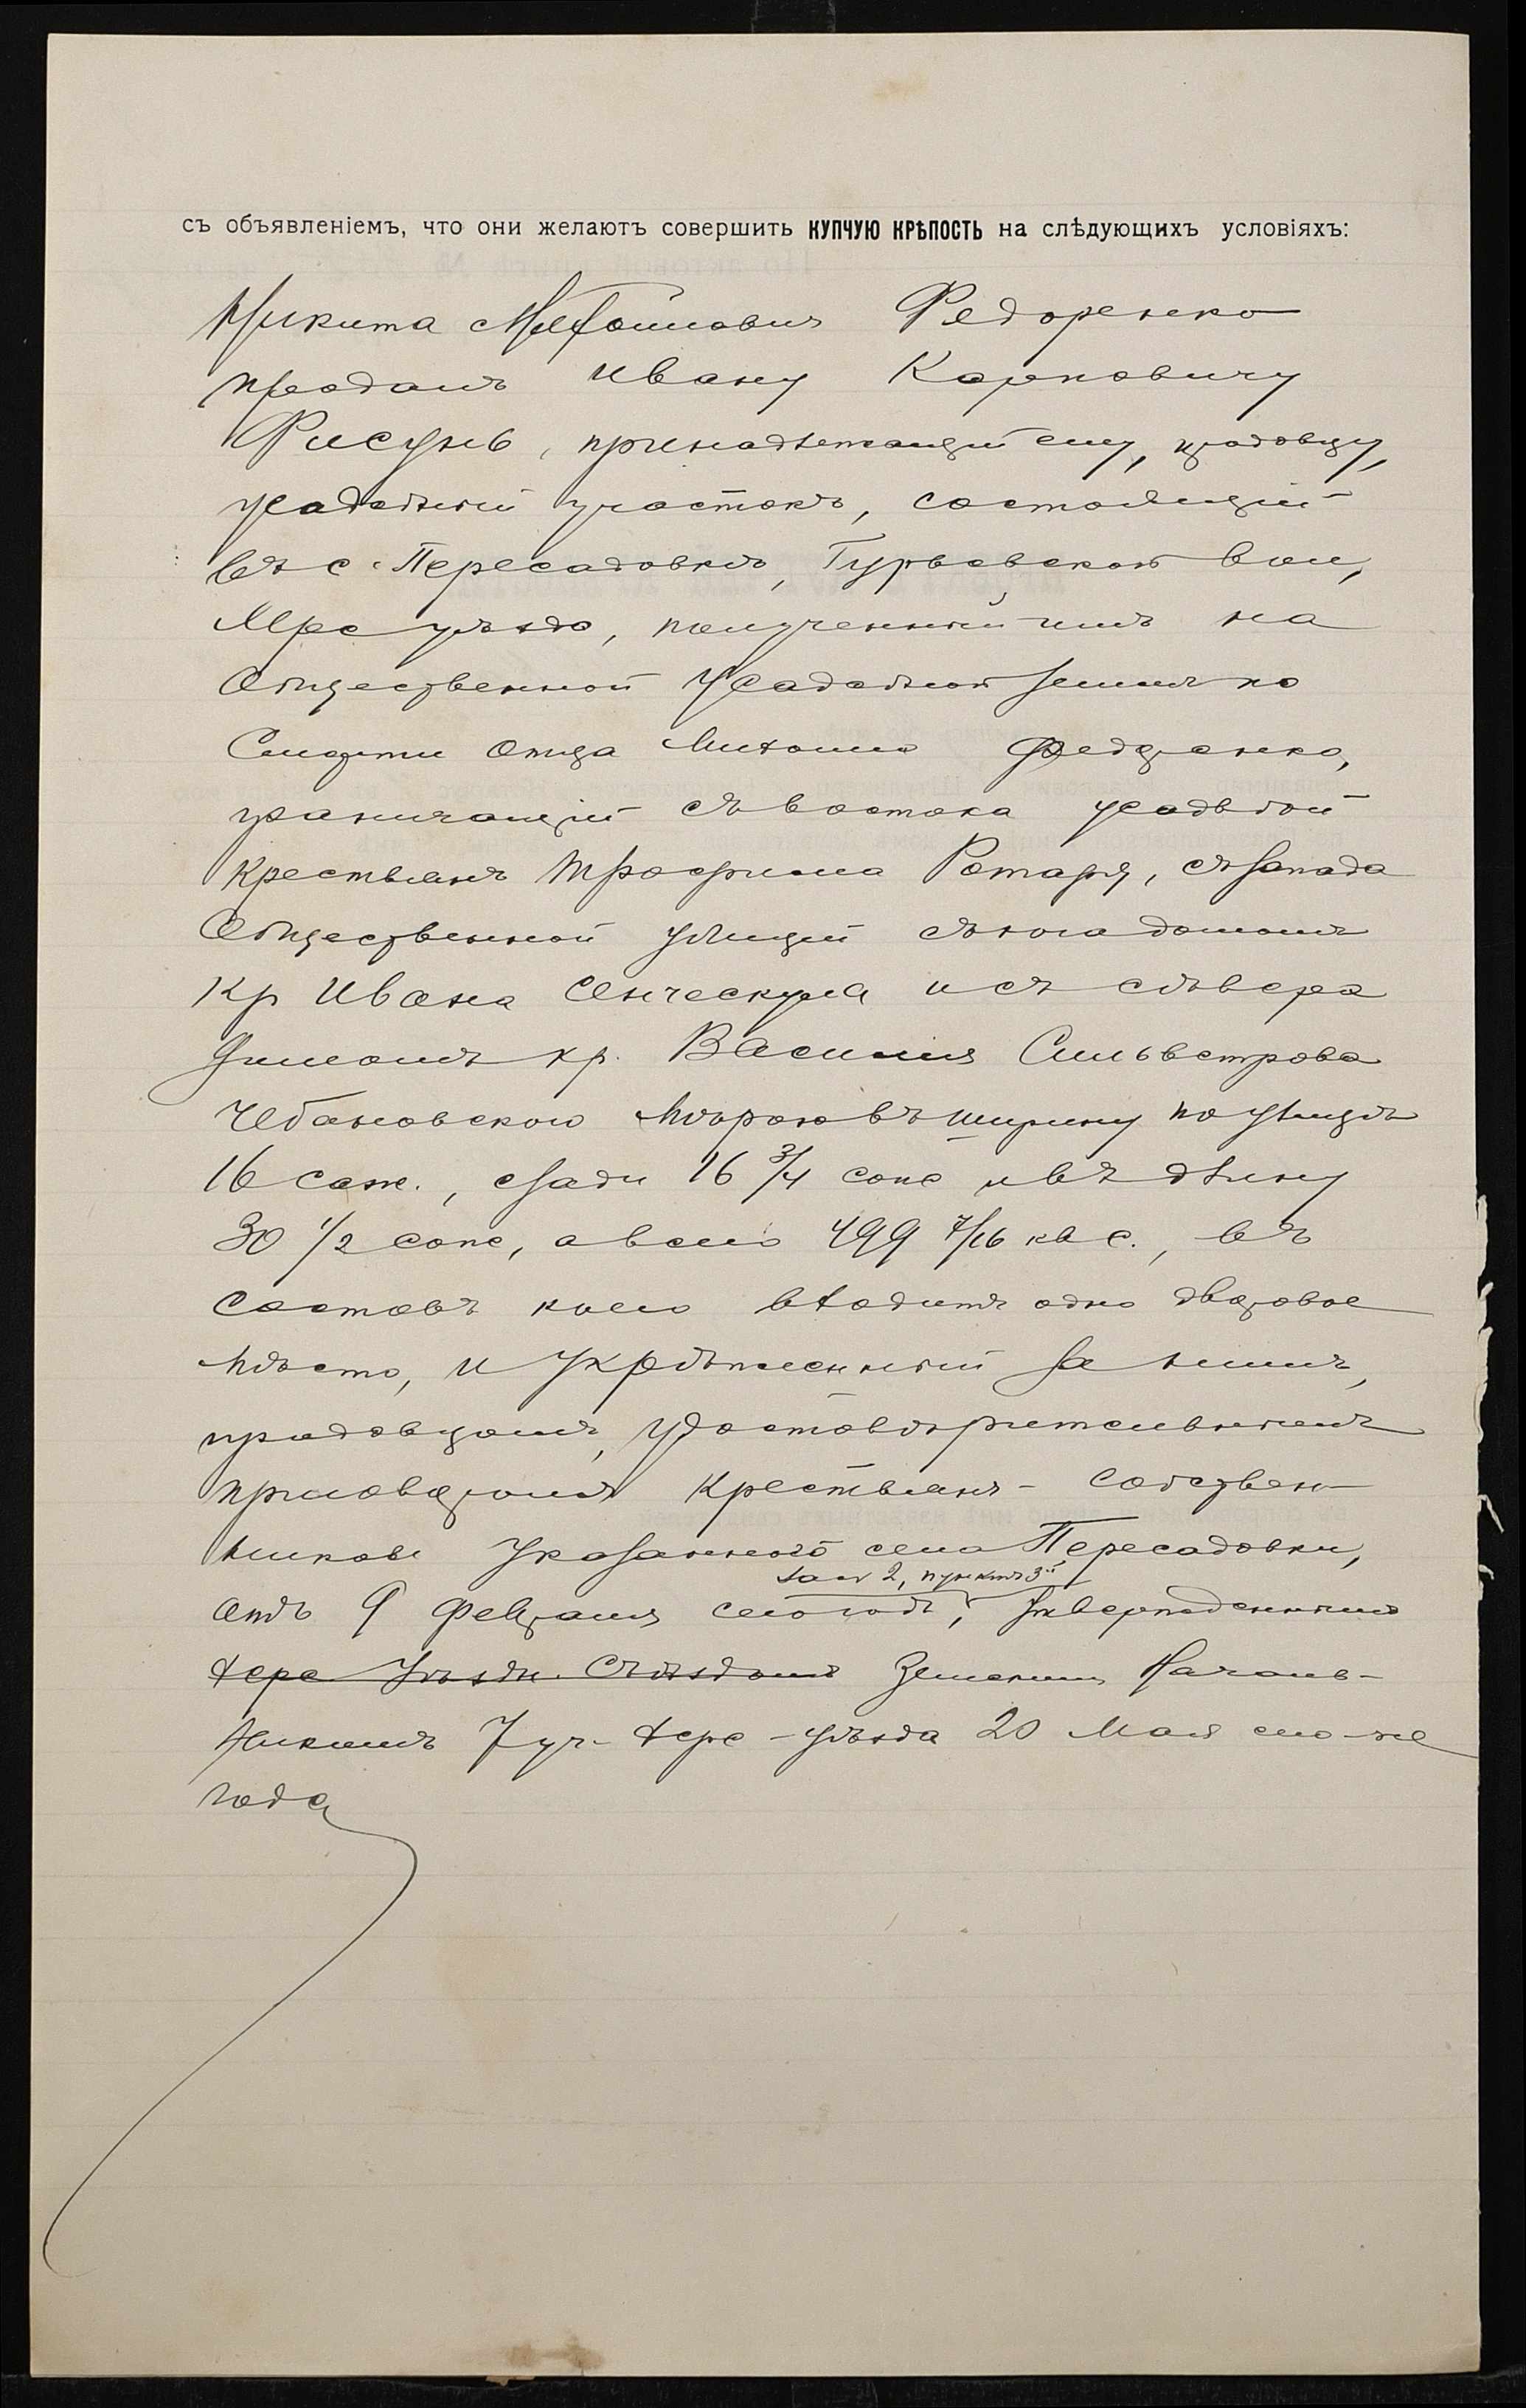 съ объявленіемъ, что они желаютъ совершить КУПЧУЮ КРѢПОСТЬ на слѣдующихъ условіяхъ:
Никита Федоренко
продалъ Ивану Карповичу
принадлежащій ему, продавцу,
усадебный участокъ, состоящій
въ с. Пересадовкѣ, Гурьевской вол,
Херс уѣзда, полученный имъ на
Общественной Усадебной землѣ по
Смерти Отца Федоренко,
граничащій съ востока усадьбой
крестьянъ Трофима Ротаря, съ запада
Общественной улицей съ юга домомъ
Кр Ивана и съ сѣвера
домомъ кр. Василія Сильвестрова
Чебановскаго Мѣрою въ ширину по улицѣ
16 саж., сзади 16 3/4 саж и въ длину
30 1/2 саж, а всего 499 7/16 кв с., въ
Составъ коего входитъ одно дворовое
мѣсто, и Укрѣпленный за нимъ,
продавцомъ, Удостовѣрительнымъ
приговоромъ Крестьянъ - Собствен-
никовъ Указаннаго села Пересадовки,
за № 2, пунктъ 3й
отъ 9 Февраля сего года, утвержденнымъ
Херс Уѣздн. Съѣздомъ Земскимъ Началь-
никомъ 7 уч. Херс - уѣзда 20 Мая сего-же
года